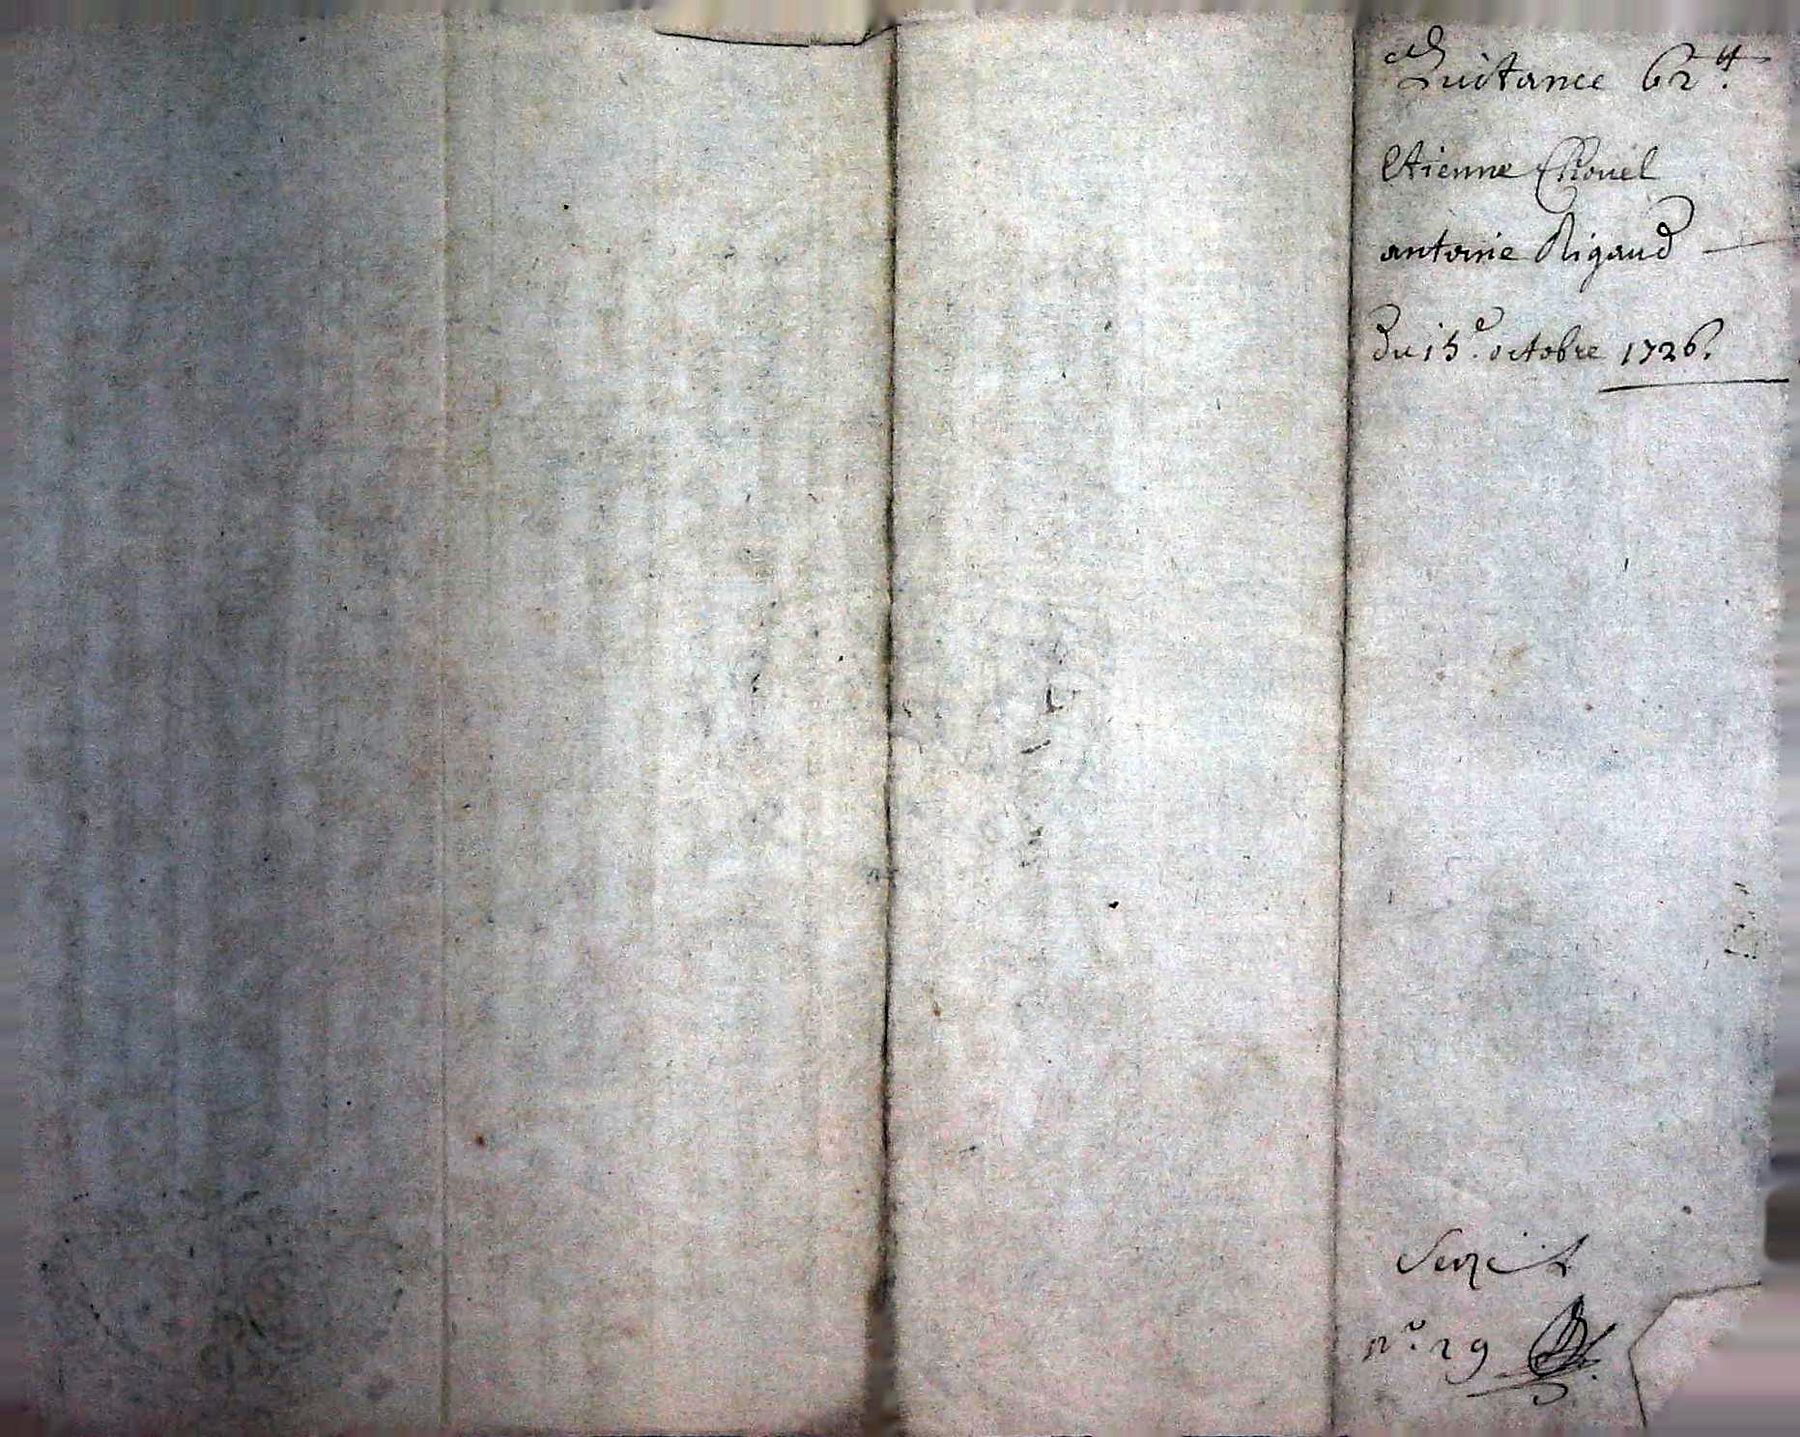 Quitance 62 ₶.
Etienne Chovel
antoine Rigaud
du 15e. octobre 1726.
no. 29